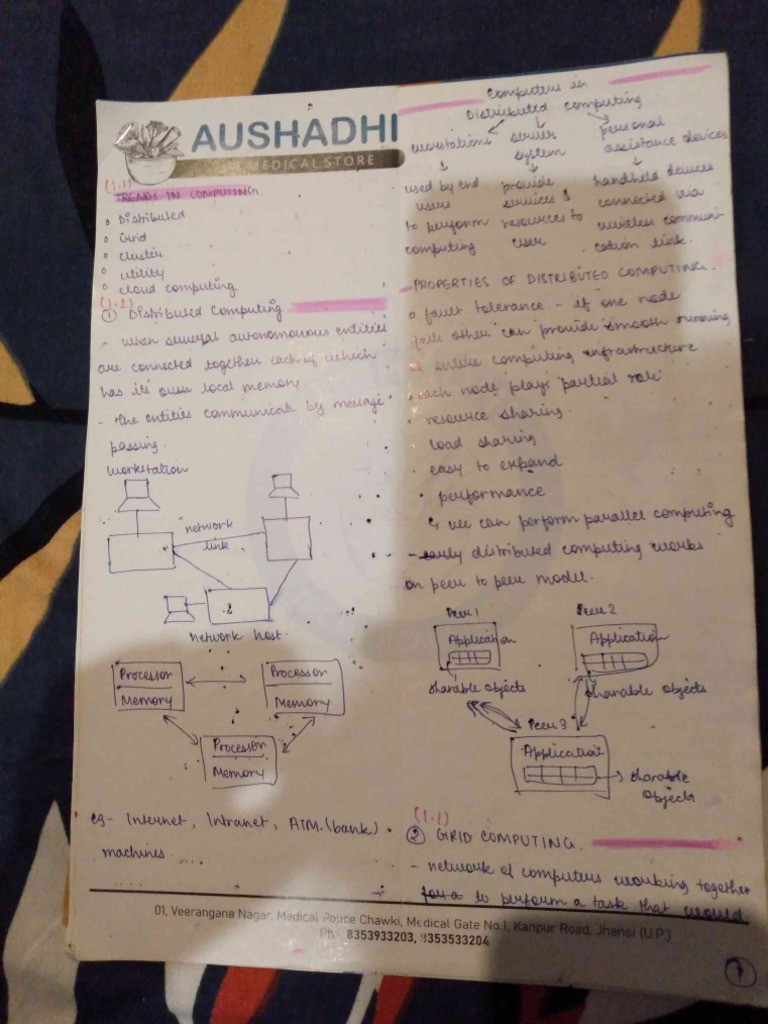 AUSHADHI
MEDICAL STORE
(1.1)
TRENDS IN COMPUTING.
• Distributed
• Grid
• cluster
• utility
• cloud computing
(1.2)
① Distributed Computing
- when several autonomous entities
are connected together each of which
has its own local memory
- The entities communicate by message
passing.
Workstation
network
link
network host.
Processor
Memory
Processor
Memory
Processor
Memory
eg- Internet, Intranet, ATM.(bank)
machines ...
Computers in
Distributed Computing
workstations
server
system
personal
assistance devices
used by end
users
to perform
computing
provide
services &
resources to
user
handheld devices
connected via
wireless communi-
cation link.
- PROPERTIES OF DISTRIBUTED COMPUTING.
• fault tolerance - if one node
fails other can provide smooth running
of entire computing infrastructure
• each node plays partial role
• resource sharing.
• load sharing
• easy to expand
• performance
↳ we can perform parallel computing
- early distributed computing works
on peer to peer model.
Peer 1
Application
sharable objects
Peer 2
Application
sharable objects
Peer 3
Application
sharable
objects
(1.1)
② GRID COMPUTING.
- network of computers working together
to perform a task that would
01, Veerangana Nagar, Medical Police Chawki, Medical Gate No.1, Kanpur Road, Jhansi (U.P.)
Ph.: 8353933203, 8353533204
1